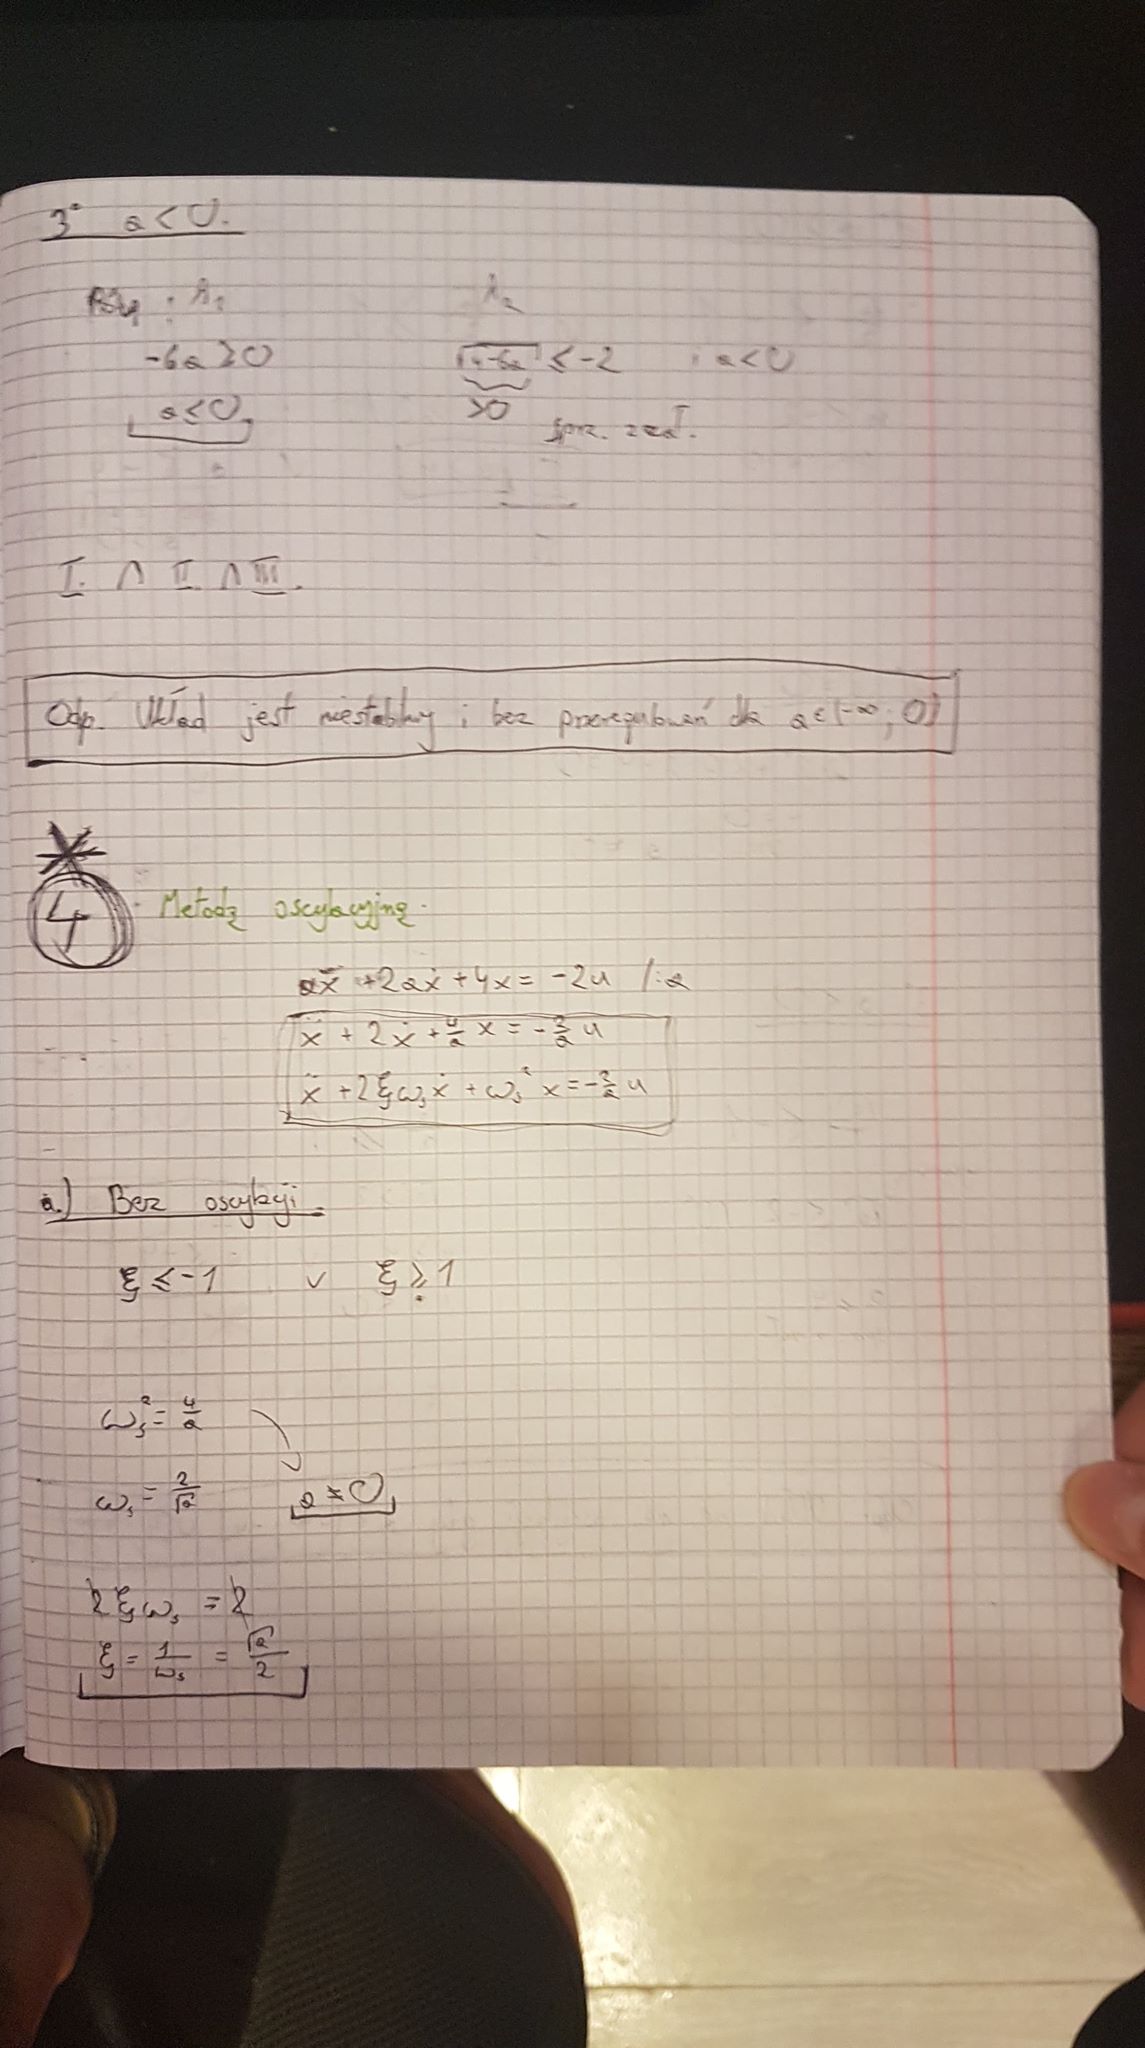 3° a < 0.
λ₁ λ₂
-6a ≥ 0 √4-6a ≤ -2 i a < 0
a ≤ 0, >0
sprz. zał.
I. ∧ II. ∧ III.
Odp. Układ jest niestabilny i bez przeregulowań dla a ∈ (-∞; 0]
4 Metodą oscylacyjną.
aẍ + 2aẋ + 4x = -2u /:a
ẍ + 2ẋ + 4/a x = -2/a u
ẍ + 2ξωₛẋ + ωₛ² x = -2/a u
a) Bez oscylacji.
ξ ≤ -1 ∨ ξ ≥ 1
ωₛ² = 4/a
ωₛ = 2/√a a ≠ 0
2ξωₛ = 2
ξ = 1/ωₛ = √a/2